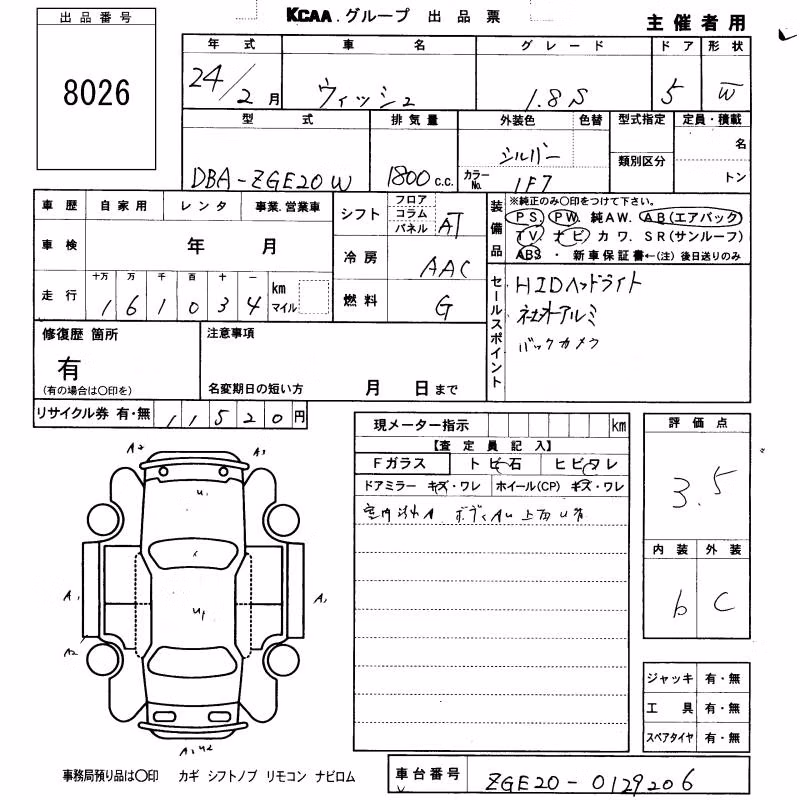 KCAA.グループ 出品票
主催者用
出品番号
8026
年式 車名 グレード ドア 形状
24/2月 ウィッシュ 1.8S 5 W
型式 排気量 外装色 色替 型式指定 定員・積載
DBA-ZGE20W 1800c.c. シルバー 名
カラーNo. 1F7 類別区分 トン
車歴 自家用 レンタ 事業.営業車
シフト フロア コラム パネル AT
装備品 ※純正のみ〇印をつけて下さい。
PS. PW. 純AW. AB(エアバック)
TV. ナビ カワ. SR(サンルーフ)
ABS ・ 新車保証書←(注) 後日送りのみ
車検 年 月
冷房 AAC
走行 十万 万 千 百 十 一 km マイル
161034
燃料 G
セールスポイント
HIDヘッドライト
社外アルミ
バックカメラ
修復歴 箇所
有
(有の場合は〇印を)
注意事項
名変期日の短い方 月 日まで
リサイクル券 有・無 11520円
現メーター指示 km
【査定員記入】
Fガラス トビ石 ヒビワレ
ドアミラー キズ・ワレ ホイール(CP) キズ・ワレ
上面U有
評価点
3.5
内装 外装
b C
ジャッキ 有・無
工具 有・無
スペアタイヤ 有・無
A2 A1
U1
A1 U1 A1
A2
A1 U2
事務局預り品は〇印 カギ シフトノブ リモコン ナビロム
車台番号 ZGE20-0129206